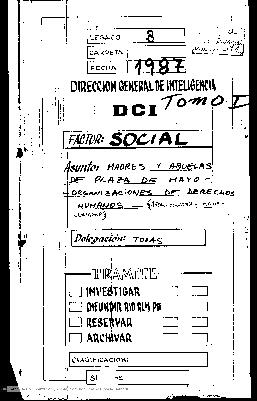 LEGAJO 8
CARPETA
FECHA 1987
DIRECCION GENERAL DE INTELIGENCIA
DCI TOMO I
FACTOR: SOCIAL
Asunto: MADRES Y ABUELAS
DE PLAZA DE MAYO -
ORGANIZACIONES DE DERECHOS
HUMANOS
Delegación: TODAS
TRAMITE
INVESTIGAR
DIFUNDIR
RESERVAR
ARCHIVAR
CLASIFICACION: